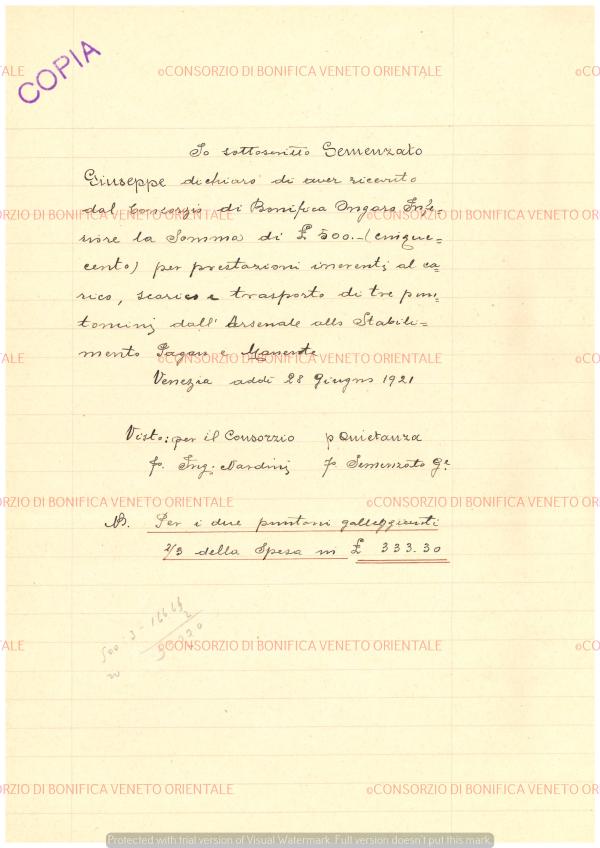 COPIA
©CONSORZIO DI BONIFICA VENETO ORIENTALE
Io sottoscritto Semenzato
Giuseppe dichiaro di aver ricevuto
dal Consorzio di Bonifica Ongaro Infe=
riore la Somma di £ 500.– (cinque=
cento) per prestazioni inerenti al ca=
rico, scarico e trasporto di tre pun=
toncini dall' Arsenale allo Stabili=
mento Pagan e Manente
Venezia addì 28 Giugno 1921
Visto: per il Consorzio p Quietanza
f. Ing. Nardini f. Semenzato Gᵉ
NB. Per i due puntoni galleggianti
2/3 della Spesa in £ 333.30
500:3 = 166.66
2
©CONSORZIO DI BONIFICA VENETO ORIENTALE
Protected with trial version of Visual Watermark. Full version doesn't put this mark.